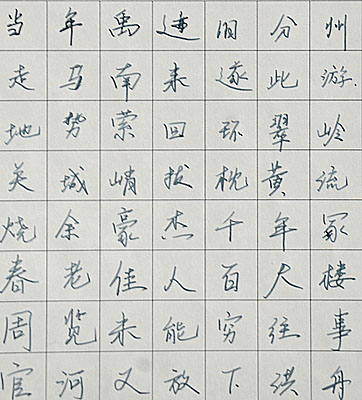 当年禹迹旧分州
走马南来遂此游.
地势萦回环翠岭
关城峭拔枕黄流
烧余豪杰千年冢
春老佳人百尺楼
周览未能穷往事
官河又放下洪舟